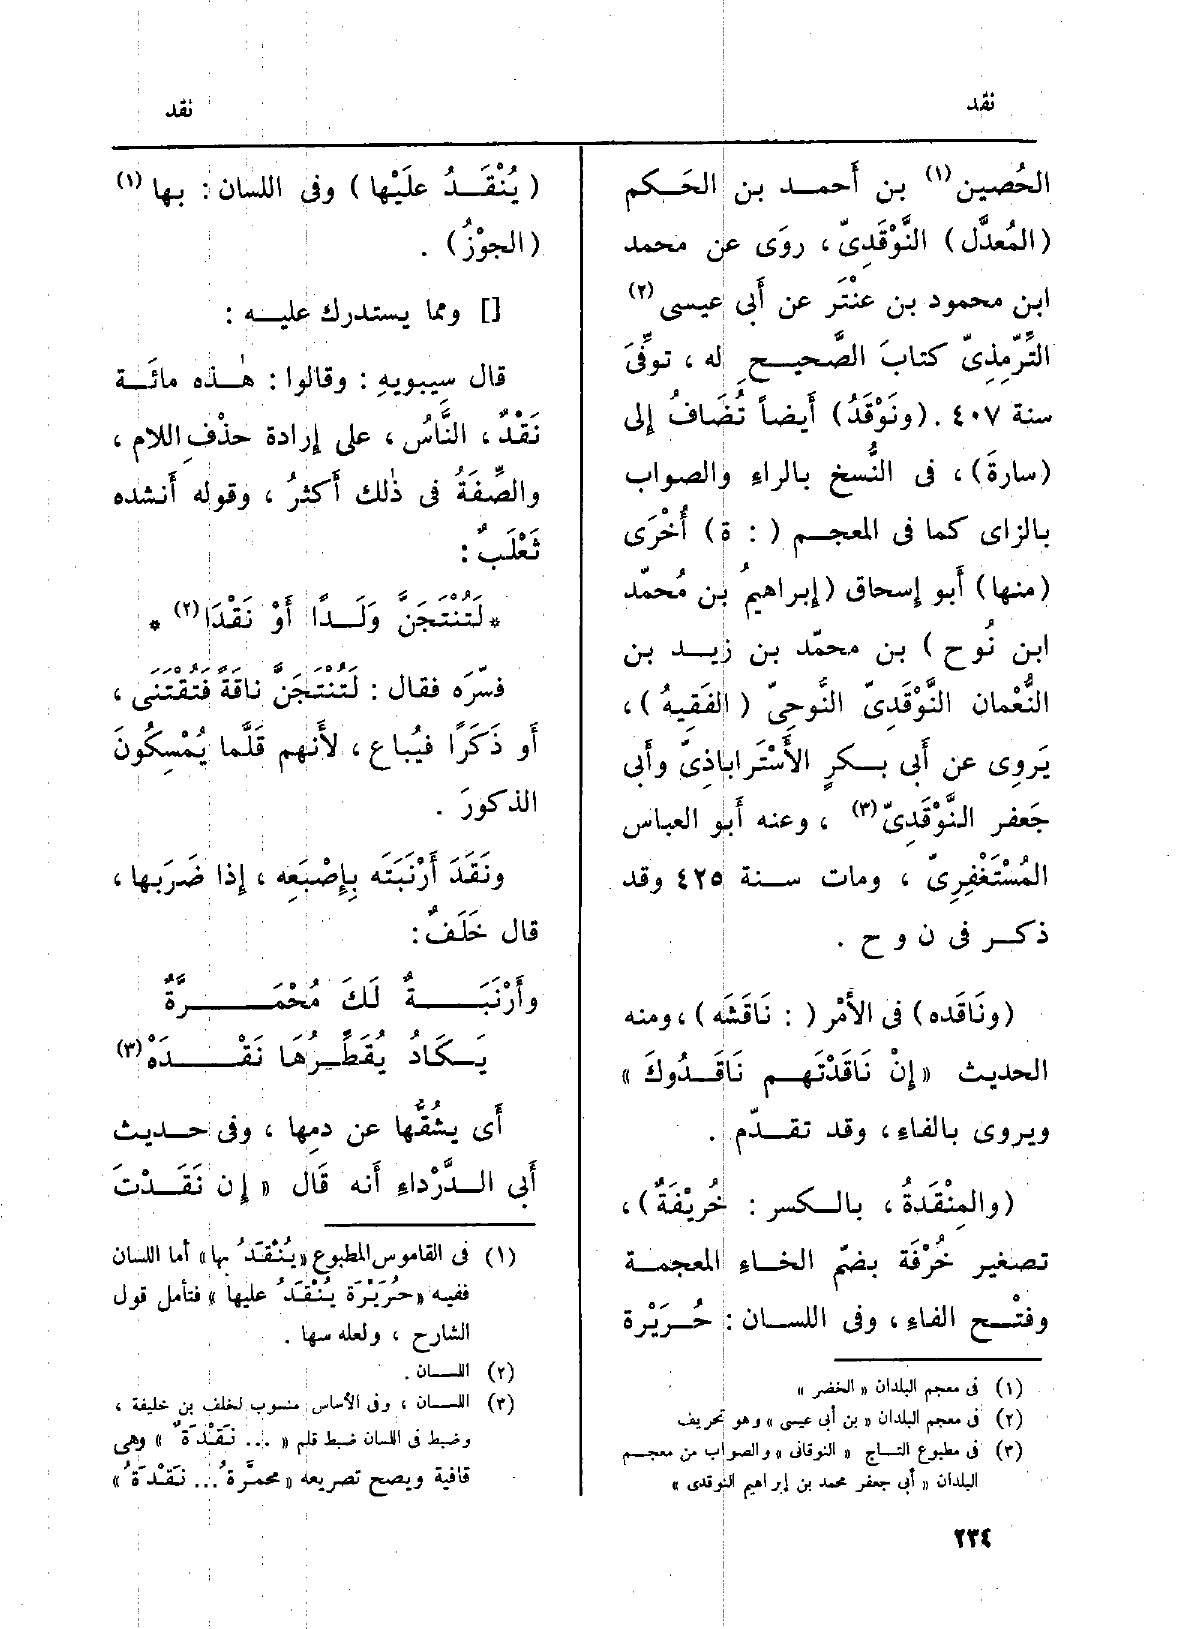 نقد
نقد
الحُصين (١) بن أحمد بن الحَكم
(المُعدَّل) النَّوْقَدِىّ، روَى عن محمد
ابن محمود بن عنْتَر عن أَبى عيسى (٢)
التِّرْمِذِىّ كتابَ الصَّحيحِ له ، توفِّىَ
سنة ٤٠٧ . (ونَوْقَدُ) أَيضاً تُضَافُ إِلى
(سارةَ) ، فى النُّسخ بالراءِ والصواب
بالزاى كما فى المعجم ( : ة) أُخْرَى
(منها) أَبو إِسحاق (إبراهيمُ بن مُحمّد
ابن نُوح ) بن محمّد بن زيد بن
النُّعْمان النَّوْقَدِىّ النُّوحِىّ ( الفَقِيهُ ) ،
يَروِى عن أَبى بكرٍ الأَسْتَراباذِىّ وأَبى
جَعفر النَّوْقَدِىّ (٣) ، وعنه أَبو العباس
المُسْتَغْفِرِىّ ، ومات سنة ٤٢٥ وقد
ذكر فى ن و ح .
(ونَاقَده) فى الأَمْر ( : نَاقَشَه ) ، ومنه
الحديث « إِنْ نَاقَدْتَهم نَاقَدُوكَ »
ويروى بالفاءِ ، وقد تقدّم .
(والمِنْقَدةُ ، بالكسر : خُرِيْفَةٌ ) ،
تصغير خُرْفَة بضمّ الخاءِ المعجمة
وفتْح الفاءِ ، وفى اللسان : حُرَيْرة
(١) فى معجم البلدان « الخضر »
(٢) فى معجم البلدان « بن أبى عيسى » وهو تحريف
(٣) فى مطبوع التاج « النوقانى » والصواب من معجم
البلدان « أبى جعفر محمد بن إبراهيم النوقدى »
( يُنْقَدُ علَيْها ) وفى اللسان : بها (١)
(الجوْزُ) .
[] ومما يستدرك عليه :
قال سِيبويهِ : وقالوا : هٰذه مائَة
نَقْدٌ ، النَّاسُ ، على إِرادة حذْفِ اللام ،
والصِّفَةُ فى ذٰلك أَكثرُ ، وقوله أَنشده
ثَعْلَبٌ :
* لَتُنْتَجَنَّ وَلَدًا أَوْ نَقْدَا (٢) *
فسّرَه فقال : لَتُنْتَجَنَّ ناقَةً فَتُقْتَنَى ،
أَو ذَكَرًا فيُباع ، لأَنهم قَلَّما يُمْسِكُونَ
الذكورَ .
ونَقَدَ أَرْنَبَتَه بِإِصْبَعِه ، إِذا ضَرَبها ،
قال خَلَفٌ :
وأَرْنَبَةٌ لَكَ مُحْمَرَّةٌ
يَكَادُ يُقَطِّرُهَا نَقْدَهْ (٣)
أَى يشُقُّها عن دمِها ، وفى حديث
أَبى الدَّرْداءِ أَنه قَال « إِن نَقَدْتَ
(١) فى القاموس المطبوع «يُنْقَدُ بها» أما اللسان
ففيه «حُرَيْرَة يُنْقَدُ عليها» فتأمل قول
الشارح ، ولعله سها .
(٢) اللسان .
(٣) اللسان ، وفى الأساس منسوب لخلف بن خليفة ،
وضبط فى اللسان ضبط قلم « ... نَقْدَةٌ » وهى
قافية ويصح تصريعه « محمرَّة ... نَقْدَةُ »
٢٣٤